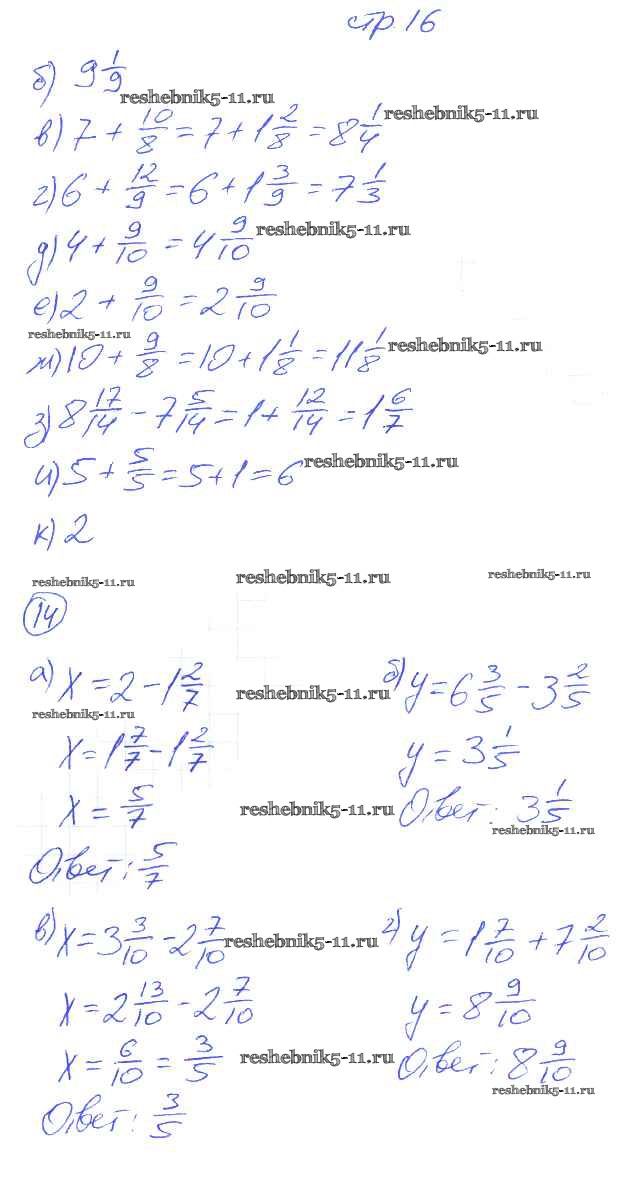 стр. 16
б) 9 1/9
reshebnik5-11.ru
в) 7 + 10/8 = 7 + 1 2/8 = 8 1/4 reshebnik5-11.ru
г) 6 + 12/9 = 6 + 1 3/9 = 7 1/3
д) 4 + 9/10 = 4 9/10 reshebnik5-11.ru
е) 2 + 9/10 = 2 9/10
reshebnik5-11.ru
м) 10 + 9/8 = 10 + 1 1/8 = 11 1/8 reshebnik5-11.ru
з) 8 17/14 - 7 5/14 = 1 + 12/14 = 1 6/7
и) 5 + 5/5 = 5 + 1 = 6 reshebnik5-11.ru
к) 2
reshebnik5-11.ru reshebnik5-11.ru reshebnik5-11.ru
14
а) x = 2 - 1 2/7 reshebnik5-11.ru б) y = 6 3/5 - 3 2/5
reshebnik5-11.ru
x = 1 7/7 - 1 2/7 y = 3 1/5
x = 5/7 reshebnik5-11.ru Ответ: 3 1/5
reshebnik5-11.ru
Ответ: 5/7
в) x = 3 3/10 - 2 7/10 reshebnik5-11.ru г) y = 1 7/10 + 7 2/10
x = 2 13/10 - 2 7/10 y = 8 9/10
x = 6/10 = 3/5 reshebnik5-11.ru Ответ: 8 9/10
reshebnik5-11.ru
Ответ: 3/5